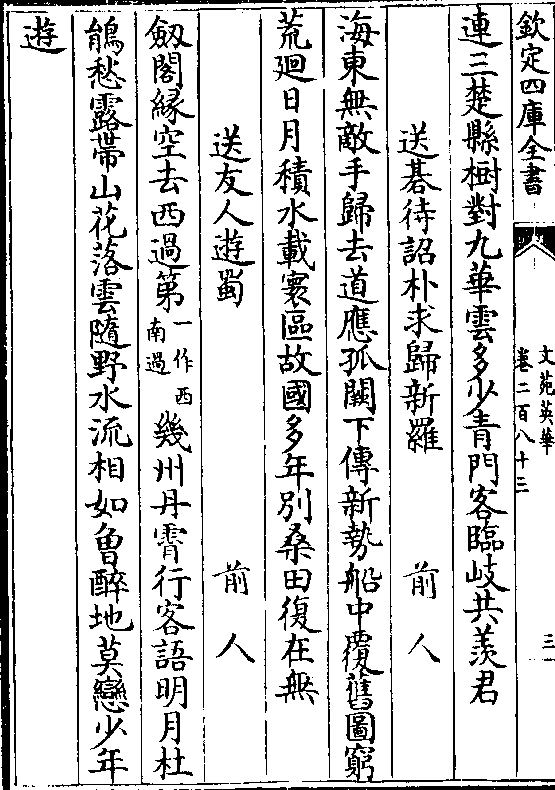 欽定四庫全書
文苑英華
卷二百八十三
三
連三楚縣樹對九華雲多少青門客臨岐共羨君
送碁待詔朴求歸新羅
前人
海東無敵手歸去道應孤闕下傳新勢船中覆舊圖窮
荒廻日月積水載寰區故國多年別桑田復在無
送友人遊蜀
前人
劔閣緣空去西過第一作西南過幾州丹霄行客語明月杜
鵑愁露帶山花落雲隨野水流相如曾醉地莫戀少年
遊